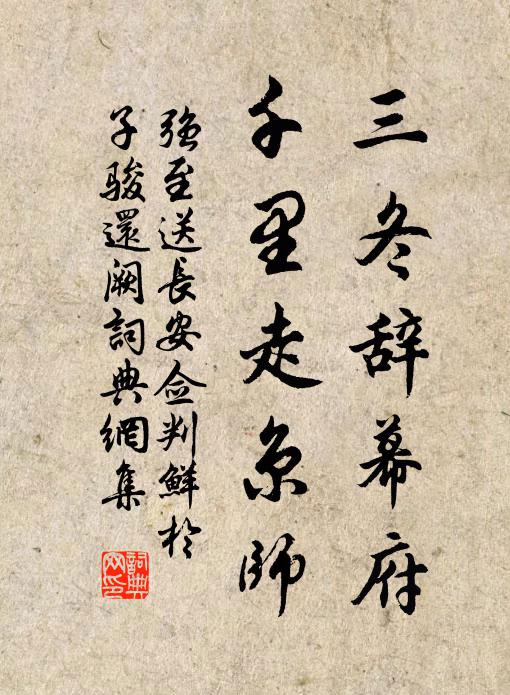 三冬辞幕府
千里走京师
强至送长安佥判鲜于
子骏还阙词典网集
詞典
网印